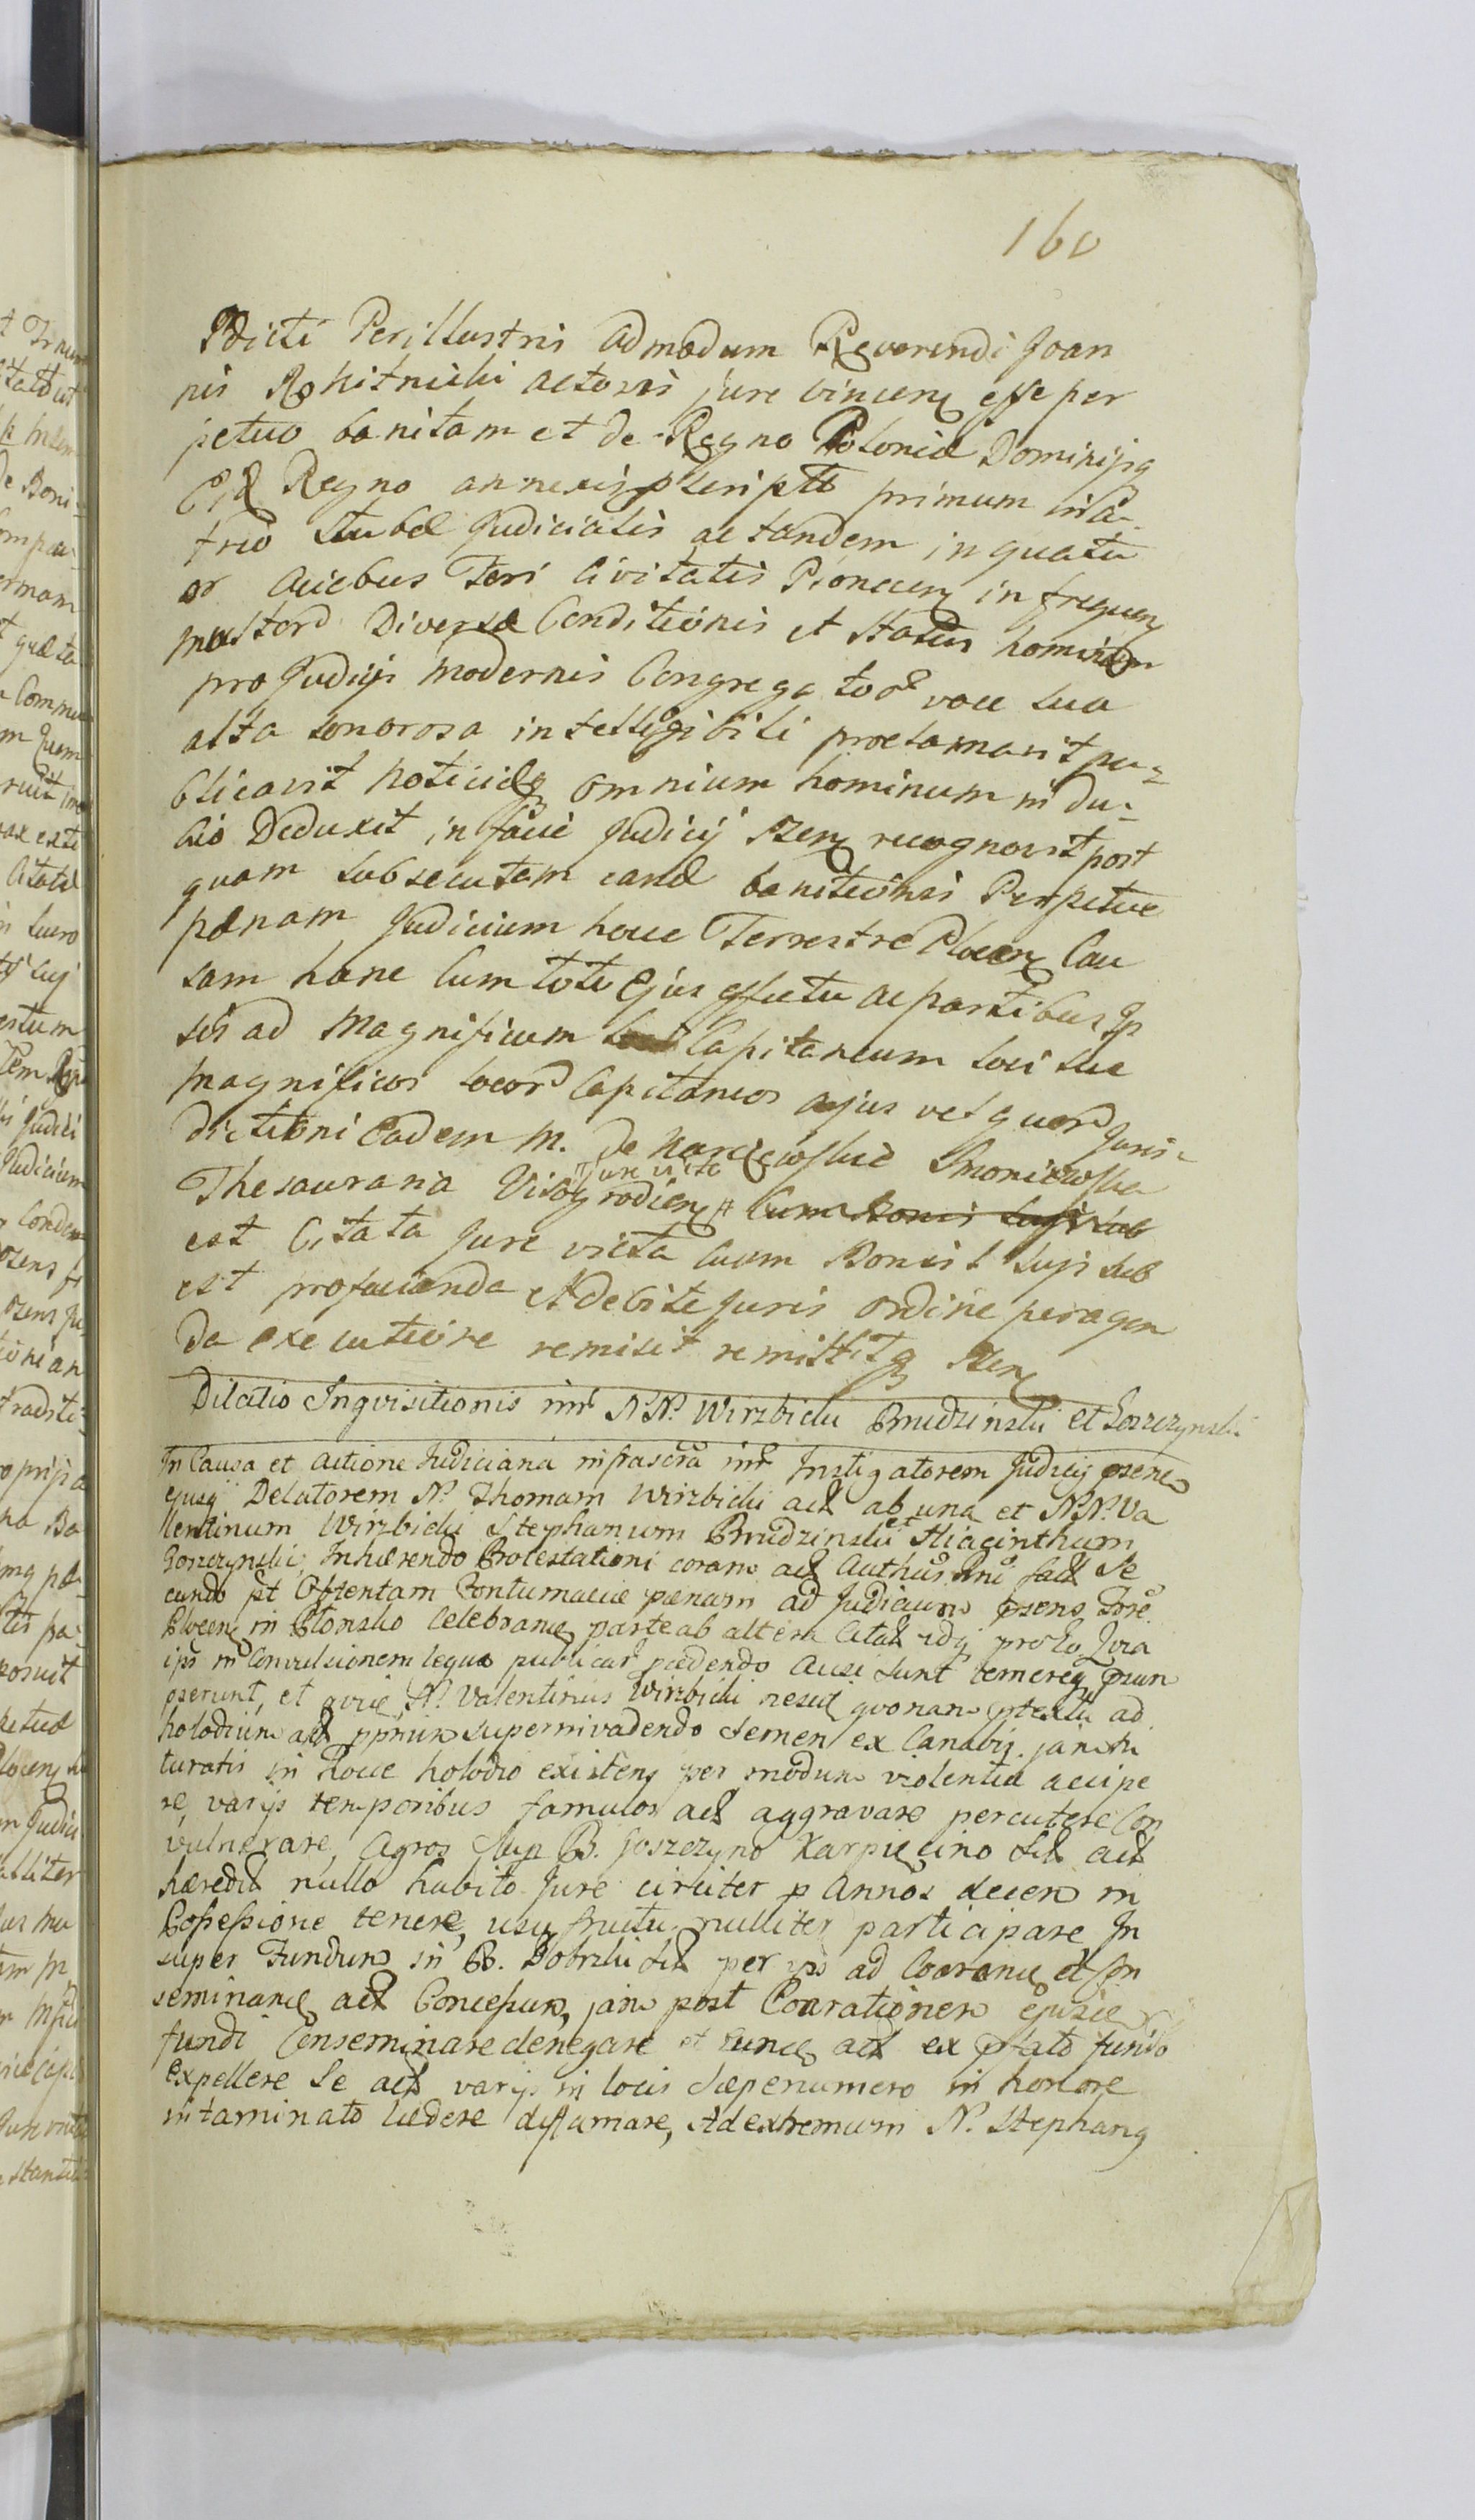 160
Pdicti Perillustris admodum Reverendi Joan
nis Rokitnicki actoris jure vincen esse per
petuo banitam et de Regno Poloniæ Dominijsq
Regno annexis pscriptt primum in a-
trio stubæ Judicialis ac tandem in quatu
or aciebus Fori Civitatis Plonscen in frequen
multord Diversæ Conditionis et Status hominum
pro Judicijs modernis Congregator voce sua
alta sonorosa intelligibili proclamavit pu-
blicavit noticiæq omnium hominum in du-
bio Deduxit in facie Judicij pzen recognovit post
quam subsecutam eand banitionis Perpetuæ
pænam Judicium hocce Terrestre Plocen Cau
sam hanc Cum toto Ejus effectu ac partibus Ip
sis ad Magnificum Capitaneum loci sue
Magnificos locord Capitaneos cujus vel quord Juris-
dictioni Eadem M. de Smoniewska
Jure victa
Thesauraria Visogrodien Cum Bonis sujs sub
est Citata Jure victa cum Bonis sujs sub
est pro facienda et debite Juris ordine peragen
da executione remisit remittitq pzen
Dilatio Inqvisitionis intr NN. Wirzbicki Brudzinski et Goszczynski
In Causa et actione Judiciaria infrascra intr Instigatorem Judicij pzens
ejusq Delatorem N. Thomam Wirzbicki act ab una et NN. Va
lentinum Wirzbicki Stephanum Brudzinski et Hiacinthum
Goszczynski, Inhærendo Protestationi coram act Authus fact Se
cundo pt Obtentam Contumaciæ pænam ad Judicium pzens Fore
Plocen in Plonsko Celebran parte ab altera Citat idq pro Eo Qvia
ips in Convulsionem legum publicar pædendo Ausi sunt temereq præsum
pserunt, et N. Valentinus Wirzbicki nescit qvonam ptextu ad
holodium act ppriūm supernivadendo semen ex Canabis jam tri
turatis in hocce holodio existens per modum violentiæ accipe
re varijs temporibus famulos act aggravare percutere Con
vulnerare, Agros Sup B. Goszczyno Karpięcino sit act
hæredit nullo habito Jure circiter p Annos decem in
Possessione tenere, usu fructu nulliter participare In
super Fundum in B. Bobrzki sit per ips ad Coaran et Con
seminan act Concessum, jam post Coarationem ejusce
fundi Conseminare denegare et eunc act ex pfato fundo
expellere Se act varijs in locis sæpenumero in honore
intaminato lædere diffamare, Ad extremum N. Stephang